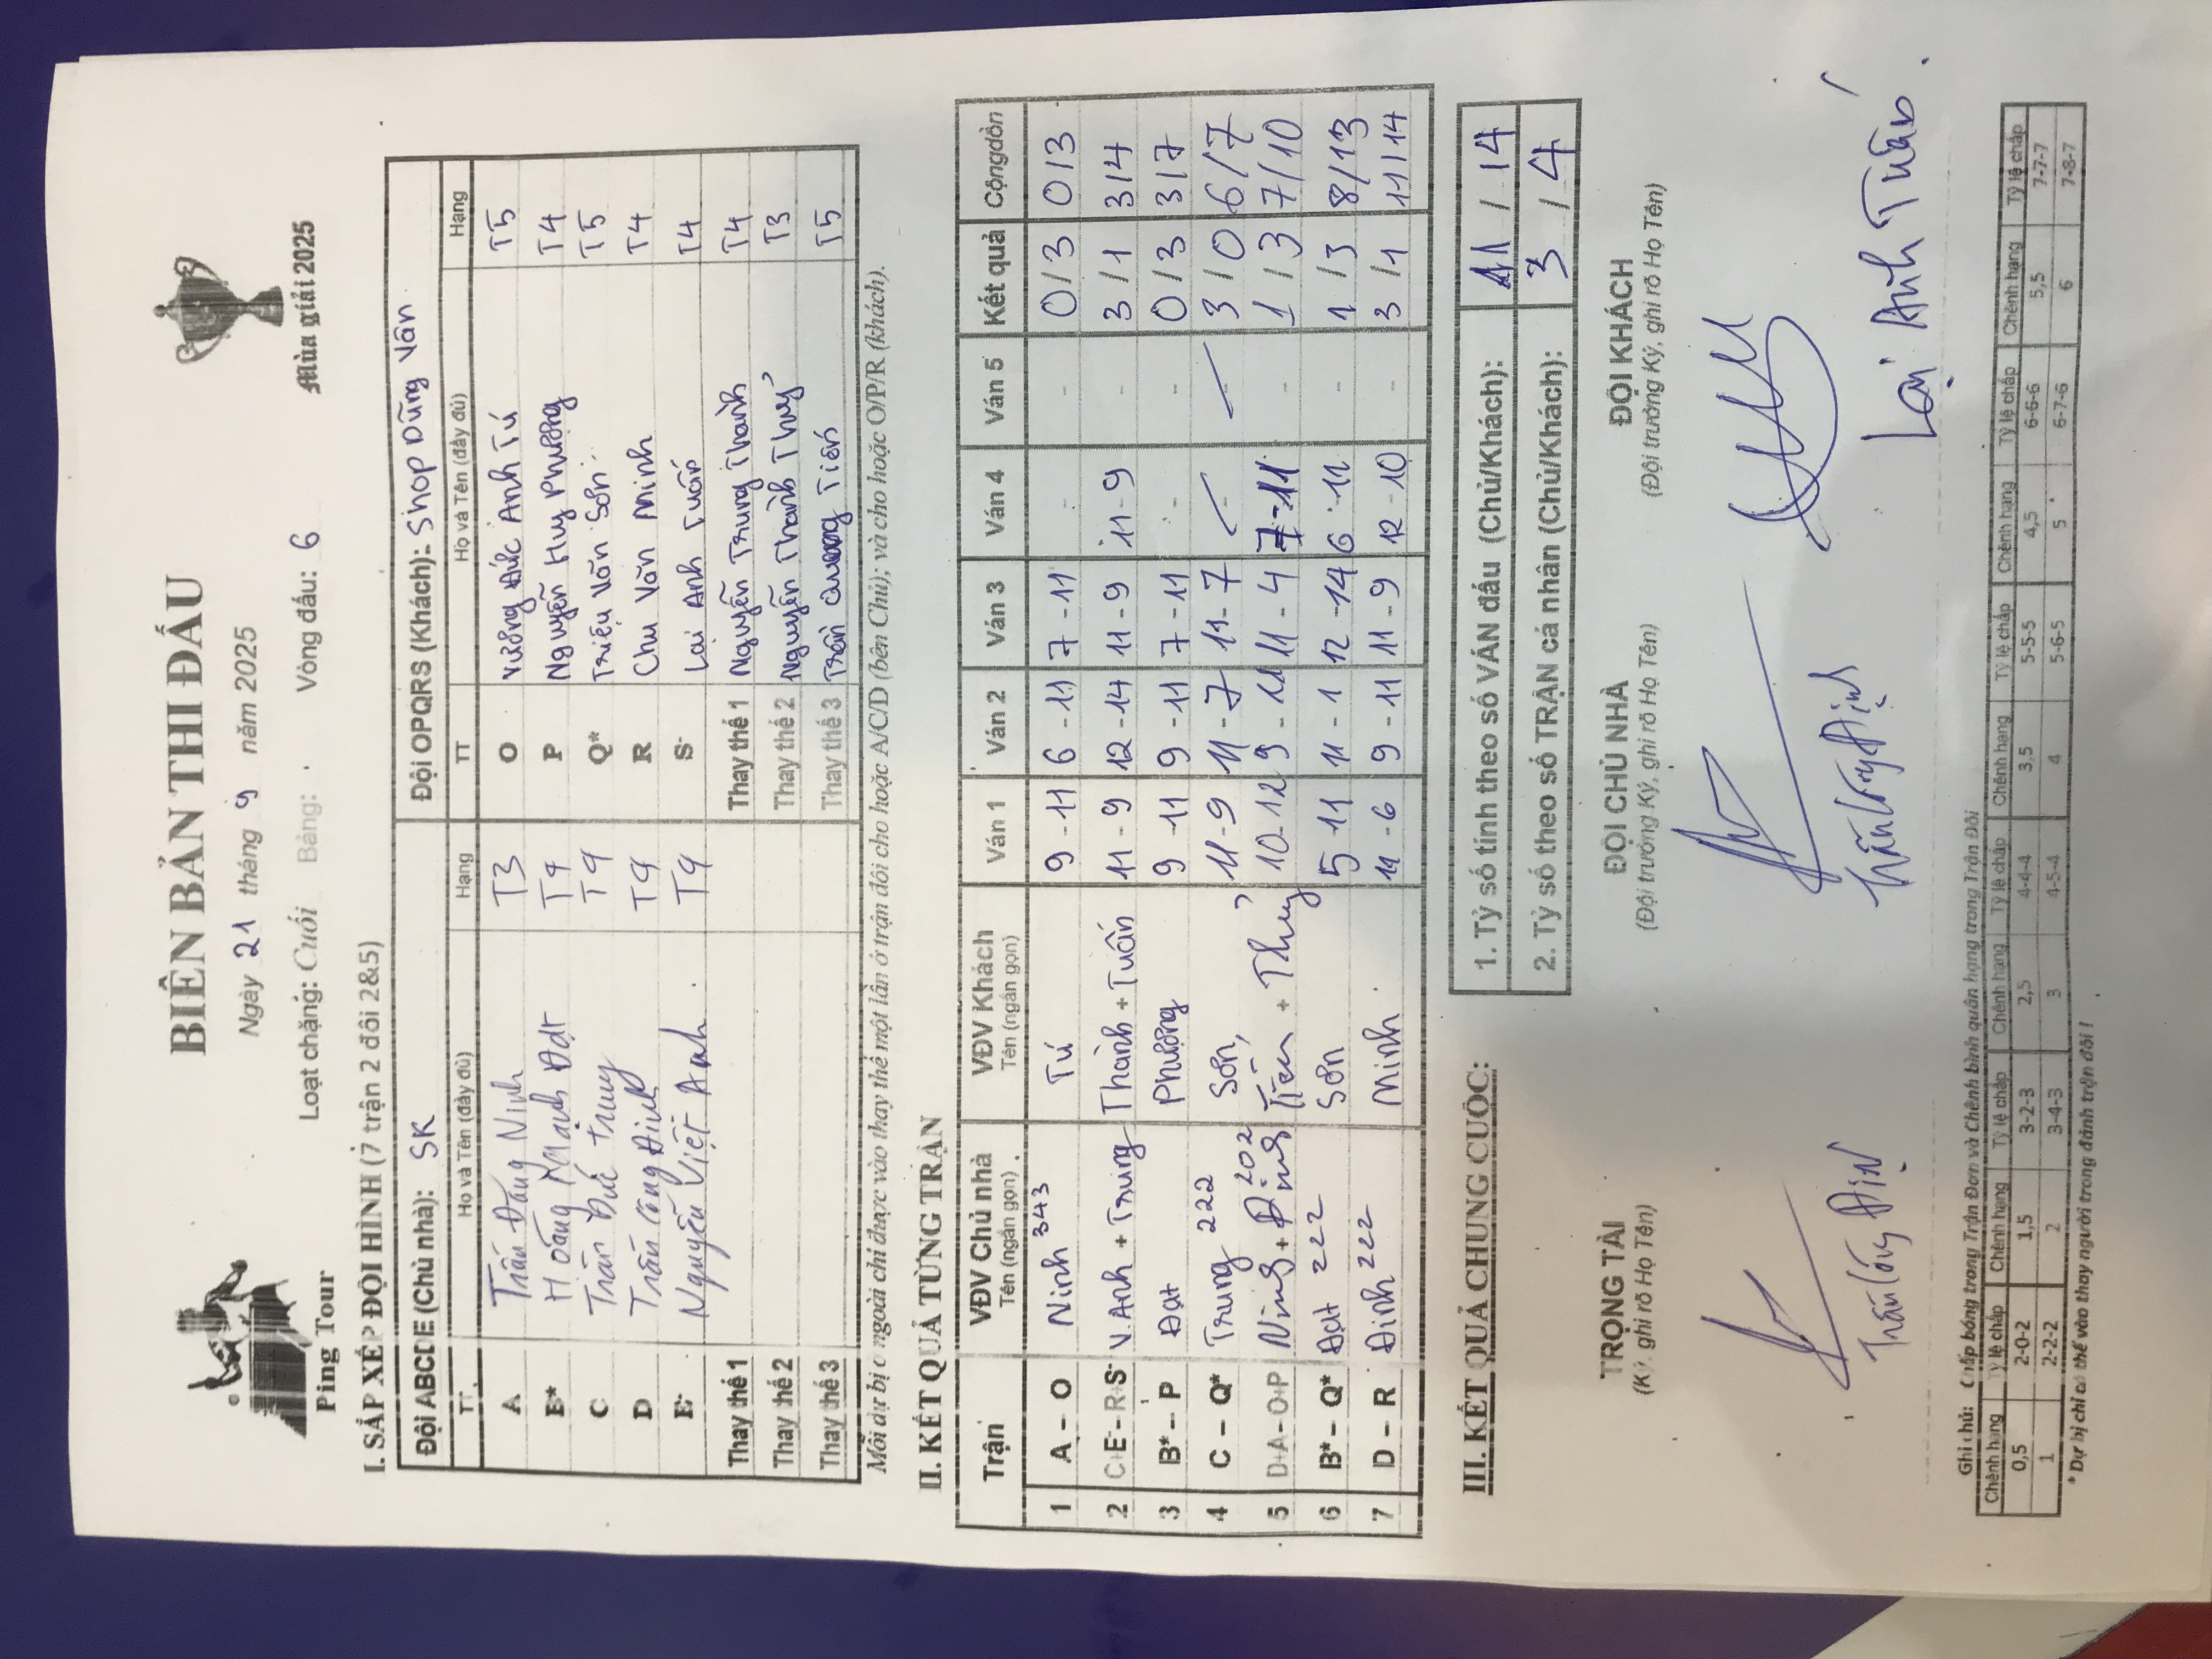 BIÊN BẢN THI ĐẤU
Ngày 21 tháng 9 năm 2025
Ping Tour
Loạt chặng: Cuối Bảng: Vòng đấu: 6
Mùa giải 2025
I. SẮP XẾP ĐỘI HÌNH (7 trận 2 đôi 2&5)
Đội ABCDE (Chủ nhà): SK Đội OPQRS (Khách): Shop Dũng Vân
TT Họ và Tên (đầy đủ) Hạng TT Họ và Tên (đầy đủ) Hạng
A Trần Đăng Ninh T3 O Vương Đức Anh Tú T5
B* Hoàng Mạnh Đạt T4 P Nguyễn Huy Phương T4
C Trần Đức Trung T4 Q* Triệu Văn Sơn T5
D Trần Công Định T4 R Chu Văn Minh T4
E Nguyễn Việt Anh T4 S Lại Anh Tuấn T4
Thay thế 1 Thay thế 1 Nguyễn Trung Thành T4
Thay thế 2 Thay thế 2 Nguyễn Thanh Thuỷ T3
Thay thế 3 Thay thế 3 Trần Quang Tiến T5
Mỗi dự bị ở ngoài chỉ được vào thay thế một lần ở trận đôi cho hoặc A/C/D (bên Chủ); và cho hoặc O/P/R (khách).
II. KẾT QUẢ TỪNG TRẬN
Trận VĐV Chủ nhà Tên (ngắn gọn) VĐV Khách Tên (ngắn gọn) Ván 1 Ván 2 Ván 3 Ván 4 Ván 5 Kết quả Cộng dồn
1 A – O Ninh 343 Tú 9 - 11 6 - 11 7 - 11 - - 0/3 0/3
2 C+E – R+S V.Anh + Trung Thành + Tuấn 11 - 9 12 - 14 11 - 9 11 - 9 - 3/1 3/4
3 B* – P Đạt Phương 9 - 11 9 - 11 7 - 11 - - 0/3 3/7
4 C – Q* Trung 222 Sơn 11 - 9 11 - 7 11 - 7 - - 3/0 6/7
5 D+A – O+P Ninh + Định 202 Tiến + Thuỷ 10-12 9 - 11 11 - 4 7-11 - 1/3 7/10
6 B* – Q* Đạt 222 Sơn 5 - 11 11 - 1 12 - 14 6 - 11 - 1/3 8/13
7 D – R Định 222 Minh 11 - 6 9 - 11 11 - 9 12 - 10 - 3/1 11/14
III. KẾT QUẢ CHUNG CUỘC:
1. Tỷ số tính theo số VÁN đấu (Chủ/Khách): 11 / 14
2. Tỷ số theo số TRẬN cá nhân (Chủ/Khách): 3 / 4
TRỌNG TÀI ĐỘI CHỦ NHÀ ĐỘI KHÁCH
(Ký, ghi rõ Họ Tên) (Đội trưởng Ký, ghi rõ Họ Tên) (Đội trưởng Ký, ghi rõ Họ Tên)
Trần Công Định Lại Anh Tuấn
Ghi chú: Chấp bóng trong Trận Đơn và Chênh bình quân hạng trong Trận Đôi
Chênh hạng Tỷ lệ chấp Chênh hạng Tỷ lệ chấp Chênh hạng Tỷ lệ chấp Chênh hạng Tỷ lệ chấp Chênh hạng Tỷ lệ chấp Chênh hạng Tỷ lệ chấp
0,5 2-0-2 1,5 3-2-3 2,5 4-4-4 3,5 5-5-5 4,5 6-6-6 5,5 7-7-7
1 2-2-2 2 3-4-3 3 4-5-4 4 5-6-5 5 6-7-6 6 7-8-7
* Dự bị chỉ có thể vào thay người trong đánh trận đôi !